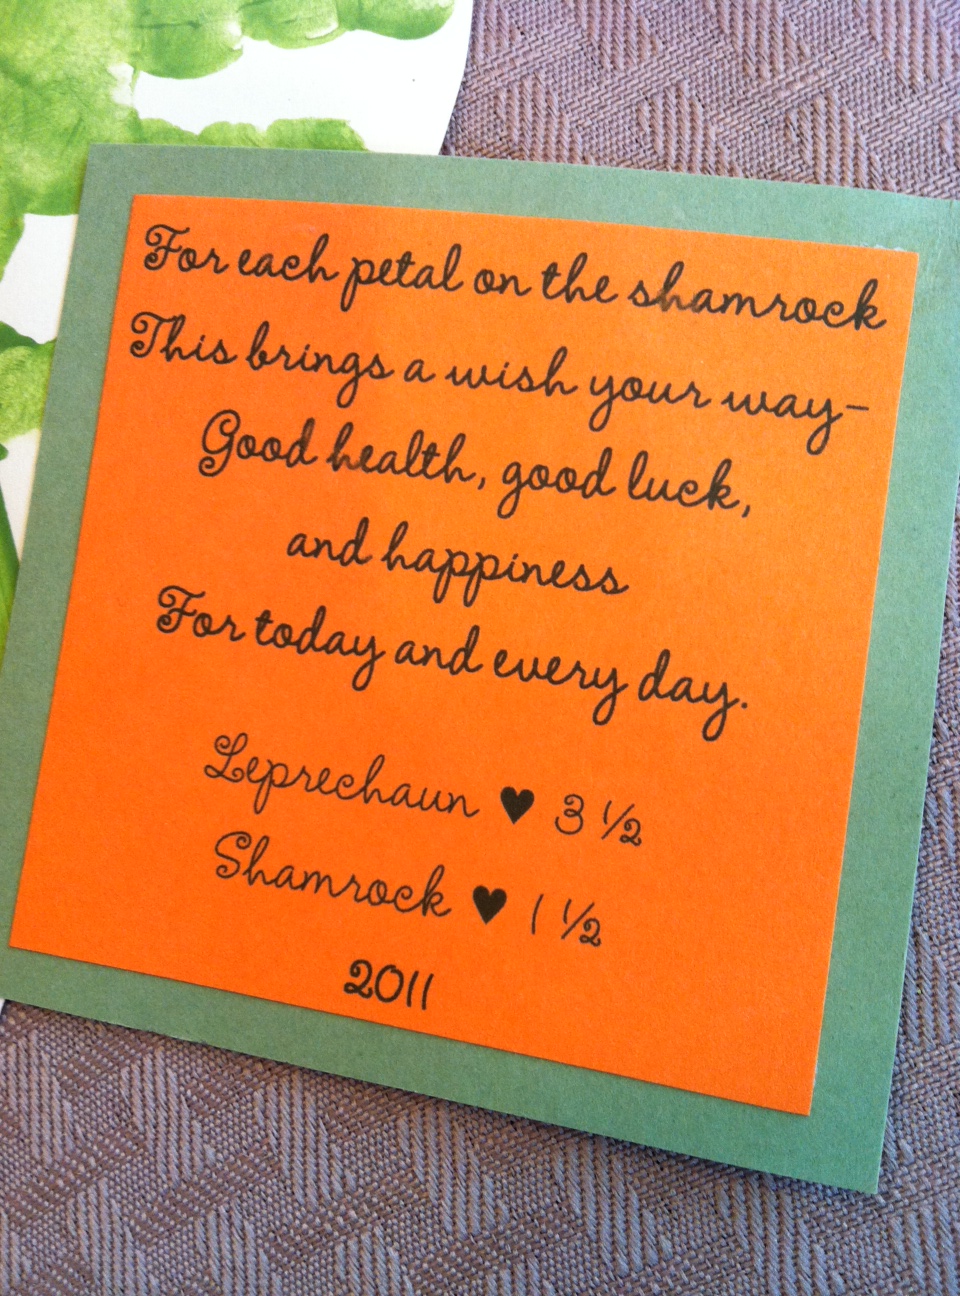 For each petal on the shamrock
This brings a wish your way-
Good health, good luck,
and happiness
For today and every day.
Leprechaun ♥ 3 ½
Shamrock ♥ 1 ½
2011